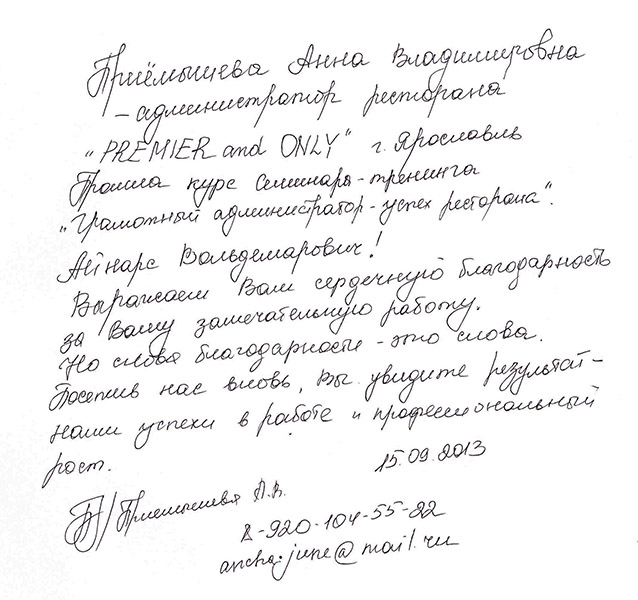 Приёмышева Анна Владимировна
- администратор ресторана
„PREMIER and ONLY" г. Ярославль
Прошла курс семинара-тренинга
„Грамотный администратор - успех ресторана".
Айнарс Вольдемарович!
Выражаем Вам сердечную благодарность
за Вашу замечательную работу.
Но слова благодарности - это слова.
Посетив нас вновь, Вы увидите результат -
наши успехи в работе и профессиональный
рост.
15.09.2013
Приемышева А.В.
8-920-104-55-22
ancha-june@mail.ru